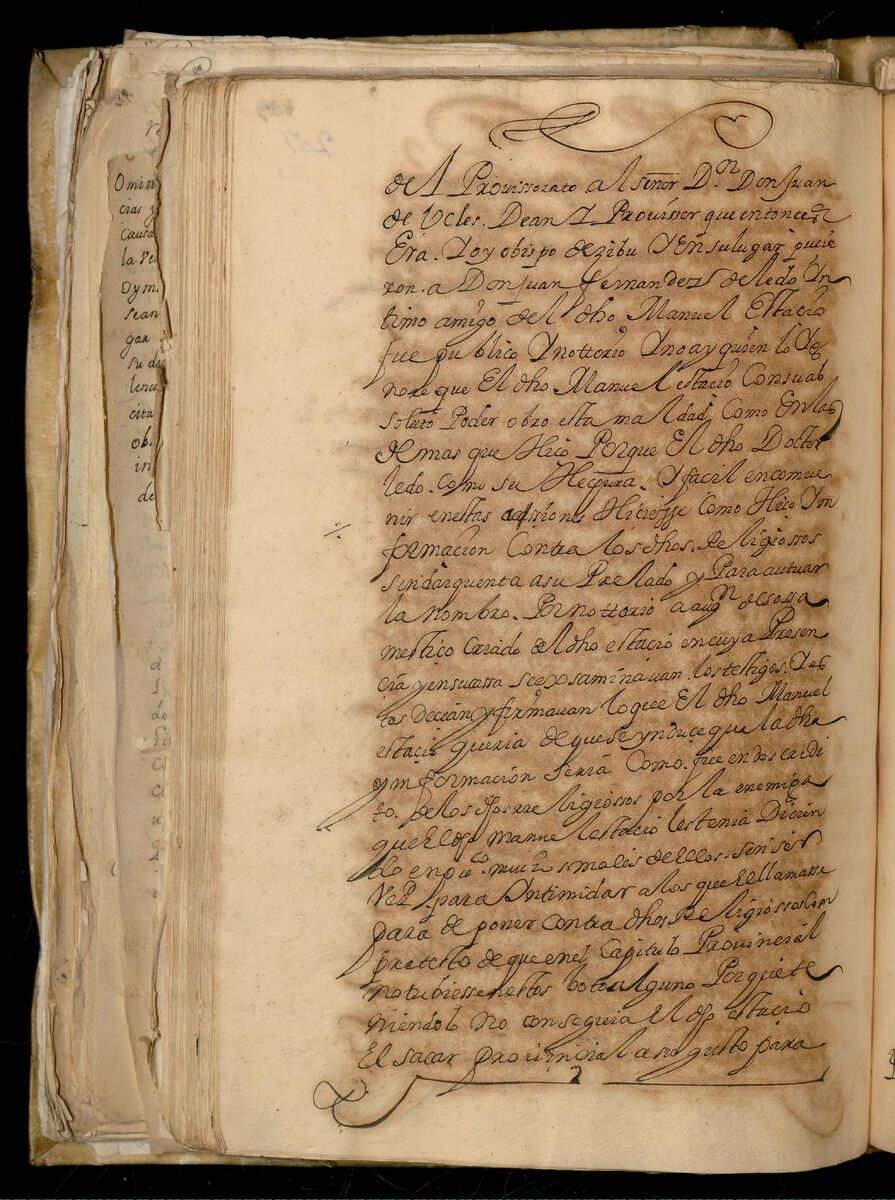 del Provissorato al señor D.ⁿ Don Juan
de Ucles. Dean Y Provisser que entonces
Era. Y oy obispo de zibu Y En su lugar pucie
ron. a Don Juan fernandez de ledo Yn
timo amigo del dho Manuel Estacio
fue publico Y nottorio Y no ay quien lo Yg
nore que El dho Manuel estacio Con su ab
soluto Poder obro esta maldad, Como En las
demas que Hico Porque El dho Doctor
ledo. Como su Hechura. Y facil en comue
nir en estas acssiones Hiciesse Como Hico Yn
formacion Contra los dhos. Religiossos
sin dar quenta a su Prelado y Para autuar
la nombro. Por nottorio a augⁿ de sossa
mestico Criado del dho estacio en cuya Presen
cia y en su cassa se exsaminauan. los testigos. Y es
tos Decian y firmauan lo que El dho Manuel
estacio queria de que se ynduce que la dha
ynformacion seria Como. fue en descredi
to. de los dhos religiossos por la enemiga
que El dho manuel estacio les tenia Dicien
do en pu.co muchos males de Ellos. sin ser
Ver. para Yntimidar a los que El llamasse
para deponer contra dhos Religiossos Con
pretesto de que en el Capitulo Provincial
no tubiessen estos boto alguno Porque te
niendolo No conseguia El dho estacio
El sacar provincial a su gusto para
Omitir
cias y
Causa
la Ve
Oy m
sean
gar
su d
lenci
cita
ob
in
de